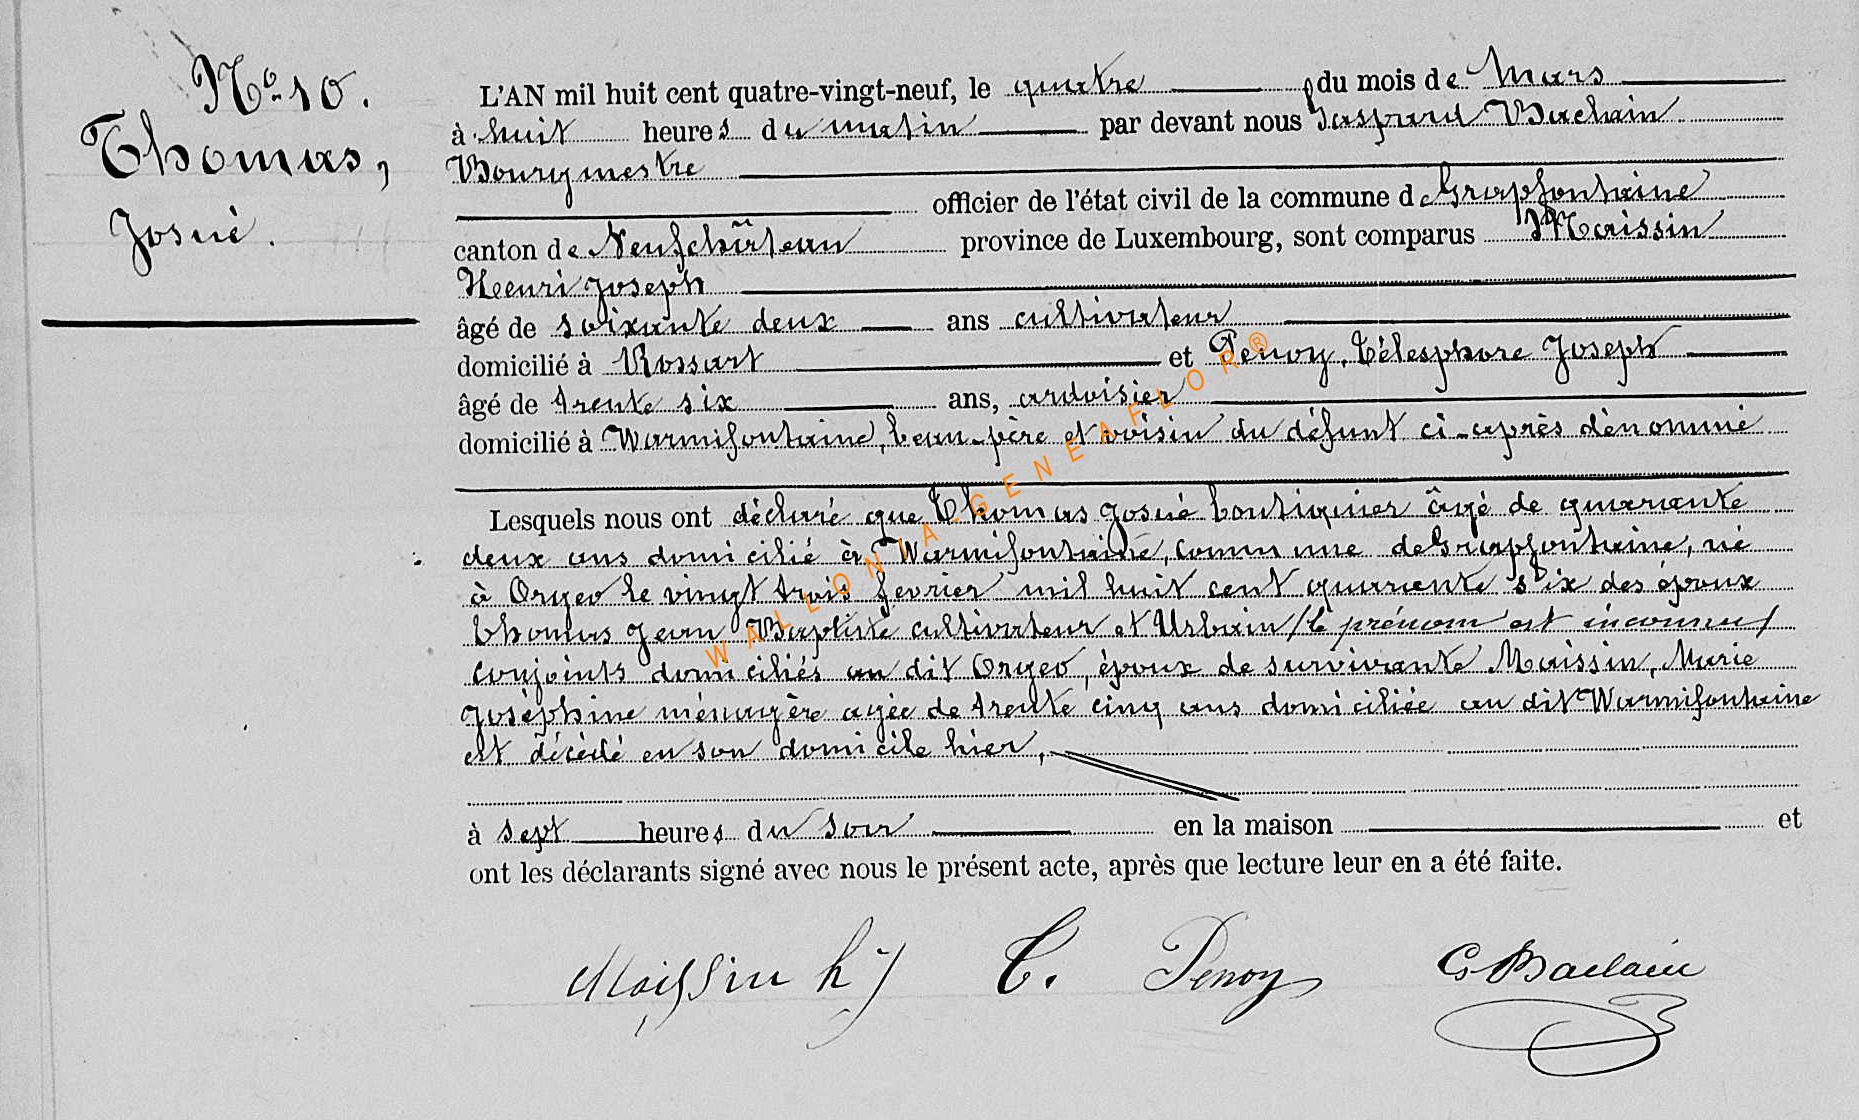 No 10.
Thomas,
Josué.
L'AN mil huit cent quatre-vingt-neuf, le quatre du mois de Mars
à huit heures du matin par devant nous Gaspard Baclain
Bourgmestre
officier de l'état civil de la commune de Grapfontaine
canton de Neufchâteau province de Luxembourg, sont comparus Maissin
Henri Joseph
âgé de soixante deux ans cultivateur
domicilié à Rossart et Penoy, Télesphore Joseph
âgé de trente six ans, ardoisier
domicilié à Warmifontaine, beau-père et voisin du défunt ci-après dénommé
Lesquels nous ont déclaré que Thomas Josué boutiquier âgé de quarante
deux ans domicilié à Warmifontaine, commune de Grapfontaine, né
à Orgeo le vingt trois février mil huit cent quarante six des époux
Thomas Jean Baptiste cultivateur et Urbain /le prénom est inconnu/
conjoints domiciliés au dit Orgeo, époux de survivante Maissin, Marie
Joséphine ménagère agée de trente cinq ans domiciliée au dit Warmifontaine
est décédé en son domicile hier,
à sept heures du soir en la maison et
ont les déclarants signé avec nous le présent acte, après que lecture leur en a été faite.
Maissin h j T. Penoy G Baclain
WALLONIA-GENEAFLOR®